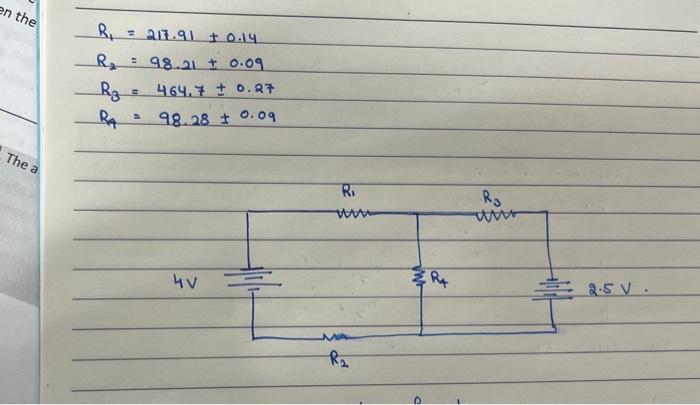 en the
R₁ = 217.91 ± 0.14
R₂ = 98.21 ± 0.09
R₃ = 464.7 ± 0.27
R₄ = 98.28 ± 0.09
The a
R₁
R₃
4V
R₄
2.5 V.
R₂